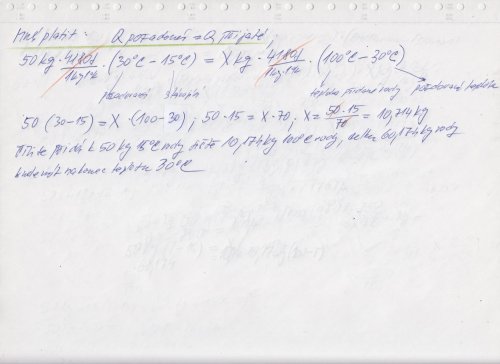 Musí platit: Q požadované = Q přijaté;
50 kg · 4180J/1kg·1K · (30°C − 15°C) = X kg · 4180J/1kg·1K · (100°C − 30°C)
požadovaná stávající teplota přidané vody požadovaná teplota
50 (30−15) = X · (100−30) ; 50 · 15 = X · 70 ; X = 50·15/70 = 10,714 kg
k 50 kg 15°C vody ještě 10,174 kg 100°C vody, celkem 60,174 kg vody
bude mít nakonec teplotu 30°C